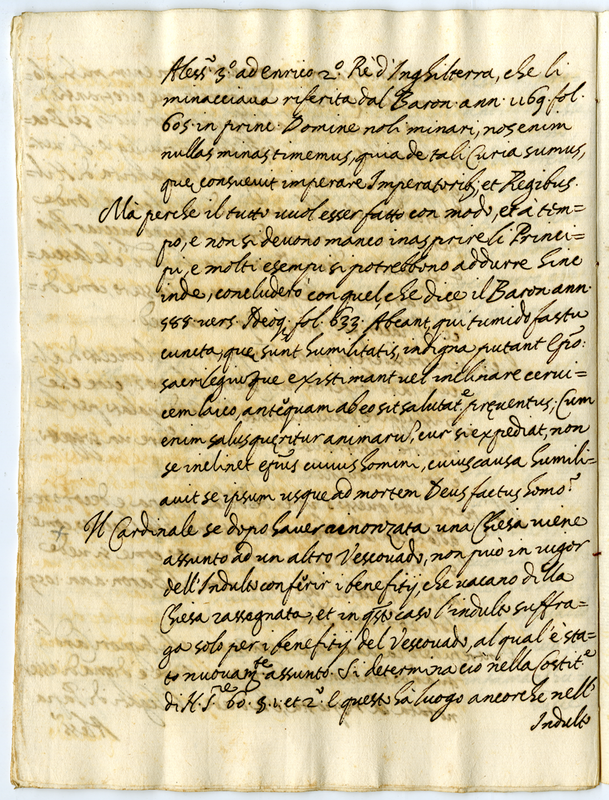 Aless.o 3.o ad enrico 2.o Rè d'Inghilterra, che li
minacciava riferita dal Baron. ann. 1169. fol.
605. in princ. Domine noli minari, nos enim
nullas minas timemus, quia de tali Curia sumus,
que consuevit imperare Imperatorib; et Regibus.
Mà perche il tutto vuol esser fatto con modo, et à tem-
po, e non si devono manco inasprire li Princi-
pi, e molti esempi si potrebbono addurre hinc
inde, concluderò con quel che dice il Baron. ann.
588 vers. Ideoq; fol. 633. Abeant, qui tumido fastu
cuncta, que sunt humilitatis, indigna putant Ep̃o:
sacrilegiumque existimant vel inclinare cervi-
cem laico, anteq̃uam ab eo sit salutat.e preventus; Cum
enim salus queritur animaru', cur si expediat, non
se inclinet ep̃us cuivis homini, cuius causa humili-
avit se ipsum usque ad mortem Deus factus homo?
Il Cardinale se dopo haver rinonzata una Chiesa viene
assunto ad un altro Vescovado, non può in vigor
dell'Indulto conferir i benefitij, che vacano della
Chiesa rassegnata, et in q̃sto caso l'indulto suffra-
ga solo per i benefitij del Vescovado, al qual è sta-
to nuovam.te assunto. Si determina ciò nella Costit.e
di N. S.re 60. §. 1. et 2.o E questo hà luogo ancorche nell'
Indulto